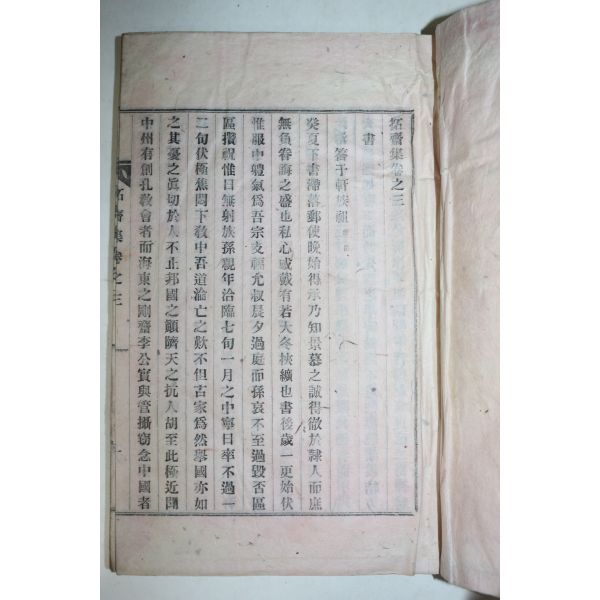 拓齋集卷之三
書
答于軒族祖
癸夏下書滯落郵使晩始得承乃知景慕之誠得徹於隷人而庶
無負眷誨之盛也私心感戴有若大冬挾纊也書後歲一更始伏
惟服中體氣爲吾宗支福允叔晨夕過庭而孫哀不至過毁否區
區攢祝惟日無射族孫親年洽臨七旬一月之中寧日率不過一
二旬伏極焦悶下敎中吾道淪亡之歎不但古家爲然擧國亦如
之其憂之眞切於人不止邦國之顚隮天之抗人胡至此極近聞
中州有創孔敎會者而海東之剛齋李公實與管攝窃念中國者
拓齋集卷之三
一